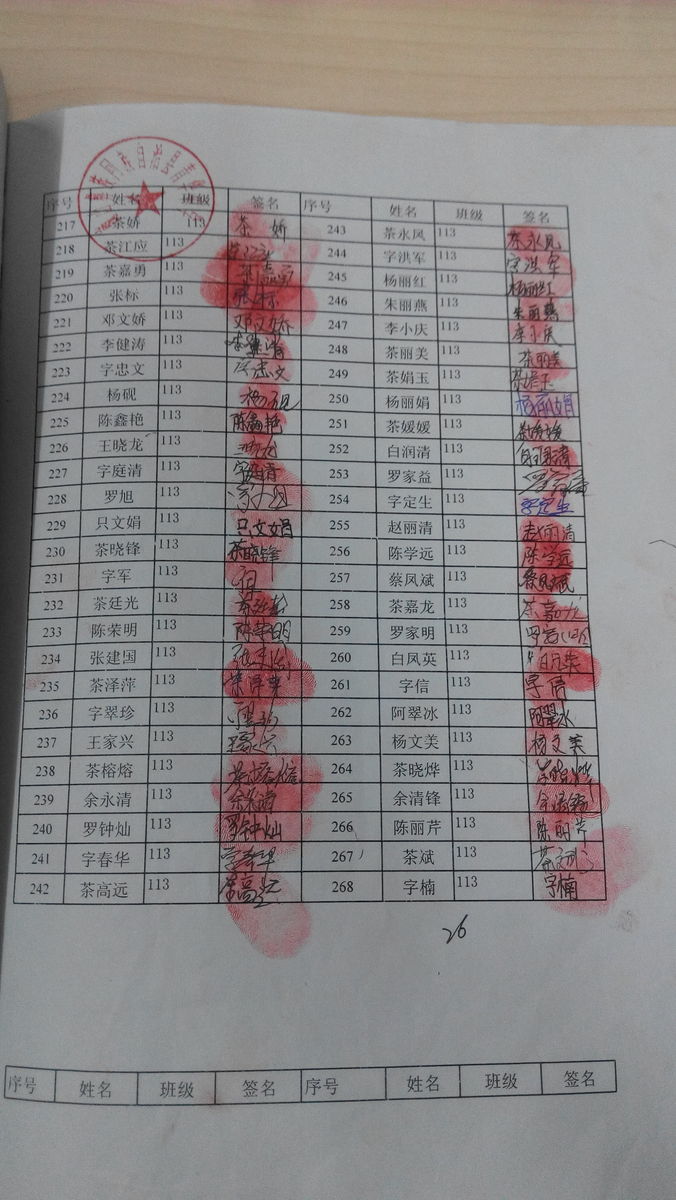 序号 姓名 班级 签名 序号 姓名 班级 签名
217 茶娇 113 茶娇 243 茶永凤 113 茶永凤
218 茶江应 113 244 字洪军 113 字洪军
219 茶嘉勇 113 茶嘉勇 245 杨丽红 113 杨丽红
220 张标 113 张标 246 朱丽燕 113 朱丽燕
221 邓文娇 113 邓文娇 247 李小庆 113 李小庆
222 李健涛 113 李健涛 248 茶丽美 113 茶丽美
223 字忠文 113 字忠文 249 茶娟玉 113
224 杨砚 113 杨砚 250 杨丽娟 113 杨丽娟
225 陈鑫艳 113 陈鑫艳 251 茶媛媛 113 茶媛媛
226 王晓龙 113 252 白润清 113 白润清
227 字庭清 113 字庭清 253 罗家益 113
228 罗旭 113 254 字定生 113 字定生
229 只文娟 113 只文娟 255 赵丽清 113 赵丽清
230 茶晓锋 113 茶晓锋 256 陈学远 113 陈学远
231 字军 113 257 蔡凤斌 113 蔡凤斌
232 茶廷光 113 258 茶嘉龙 113 茶嘉龙
233 陈荣明 113 陈荣明 259 罗家明 113
234 张建国 113 260 白凤英 113
235 茶泽萍 113 茶泽萍 261 字信 113 字信
236 字翠珍 113 262 阿翠冰 113 阿翠冰
237 王家兴 113 263 杨文美 113 杨文美
238 茶榕熔 113 茶榕熔 264 茶晓烨 113 茶晓烨
239 余永清 113 余永清 265 余清锋 113
240 罗钟灿 113 罗钟灿 266 陈丽芹 113 陈丽芹
241 字春华 113 字春华 267 茶斌 113 茶斌
242 茶高远 113 268 字楠 113 字楠
26
序号 姓名 班级 签名 序号 姓名 班级 签名